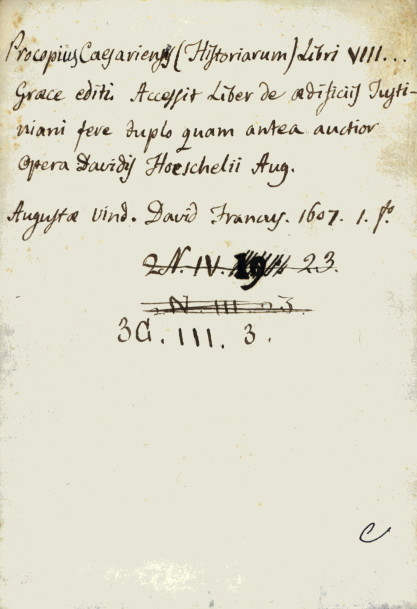 Procopius Caesariensis (Historiarum) Libri VIII...
Graece editi. Accessit Liber de aedificiis Justi-
niani fere duplo quam antea auctior
opera Davidis Hoeschelii Aug.
Augustae Vind. David Francus. 1607. 1. fo.
2N. IV. 19 23.
N. III. 23.
3G. III. 3.
C